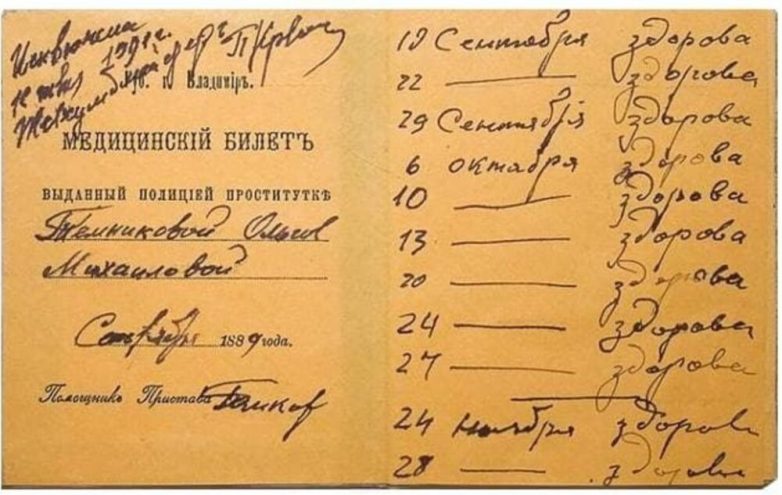 г. Владиміръ.
МЕДИЦИНСКІЙ БИЛЕТЪ
ВЫДАННЫЙ ПОЛИЦІЕЙ ПРОСТИТУТКѢ
Темниковой Ольге
Михаиловой
Сентября 1889 года.
Помощникъ Пристава
19 Сентября здорова
22 — здорова
29 Сентября здорова
6 октября здорова
10 — здорова
13 — здорова
20 — здорова
24 — здорова
27 — здорова
24 ноября здорова
28 — здорова